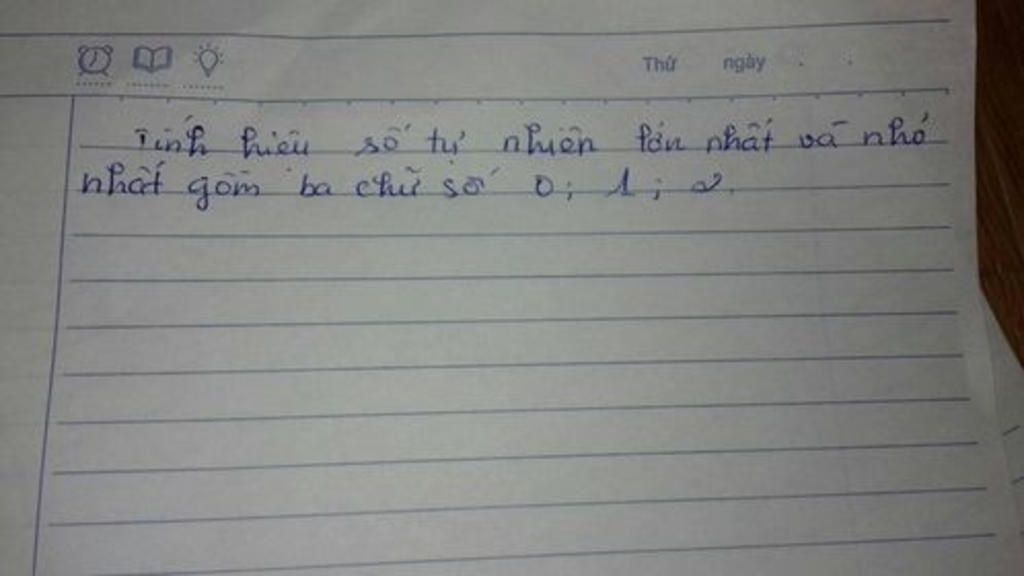 Thứ ngày . .
Tính hiệu số tự nhiên lớn nhất và nhỏ
nhất gồm ba chữ số 0; 1; 2.